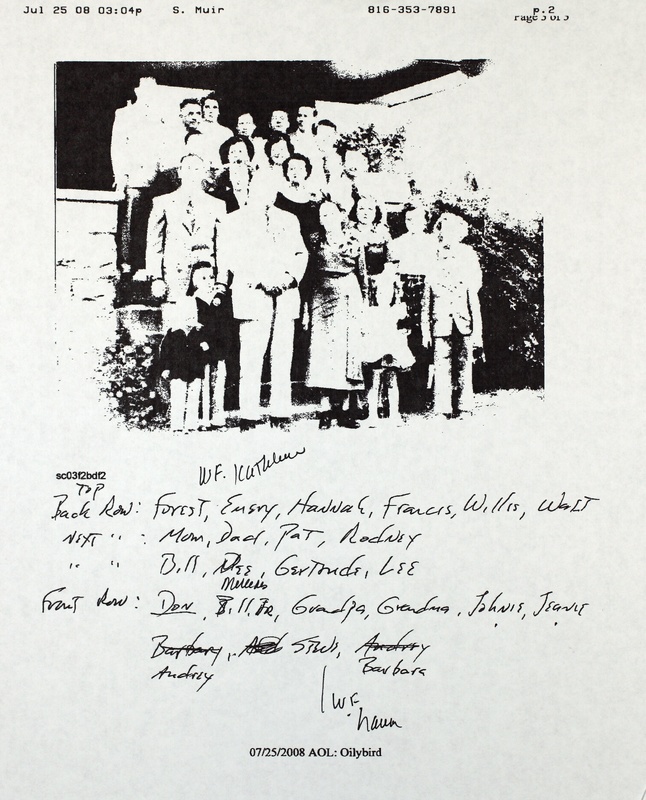 Jul 25 08 03:04p S. Muir 816-353-7891 p.2
Page 3 of 3
sc03f2bdf2
WF. Kathleen
Top
Back Row: Forest, Emery, Hannah, Francis, Willis, Walt
Next " : Mom, Dad, Pat, Rodney
" " Bill, Dee, Gertrude, Lee
Mercedes
Front Row: Don, Bill Jr, Grandpa, Grandma, Johnie, Jeanie
Barbary, Stub, Audrey
Audrey Barbara
WF.
07/25/2008 AOL: Oilybird